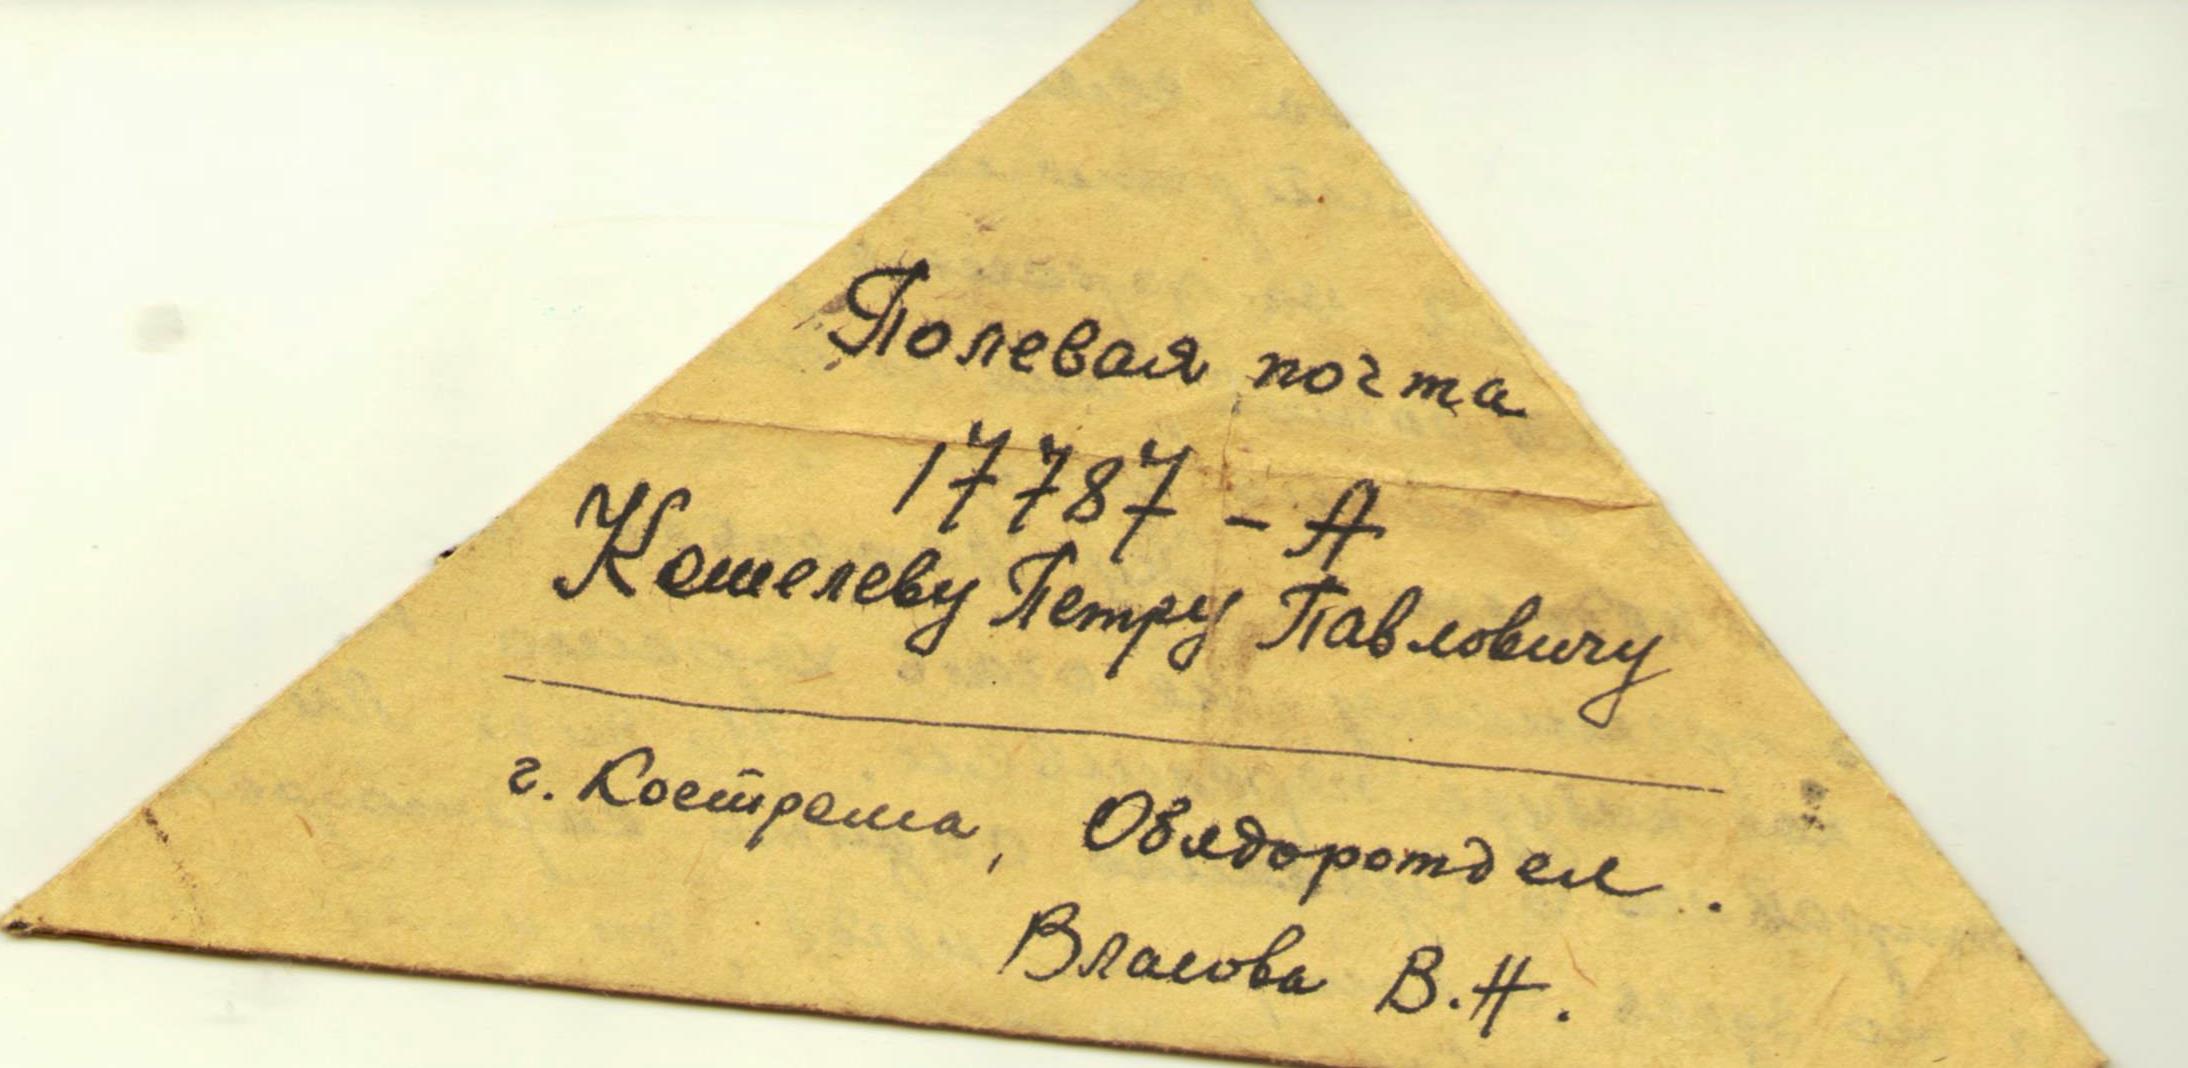 Полевая почта
17787 - А
Кошелеву Петру Павловичу
г. Кострома, Овядоротдел.
Власова В.Н.